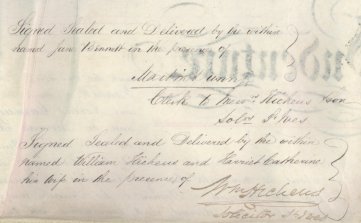 Signed Sealed and Delivered by the within
named Jane Bennett in the presence of
Clerk to Messrs Hickens Son
Solrs St Ives
Signed Sealed and Delivered by the within
named William Hickens and Harriet Catherine
his wife in the presence of
Wm Hickens
Solicitor St Ives